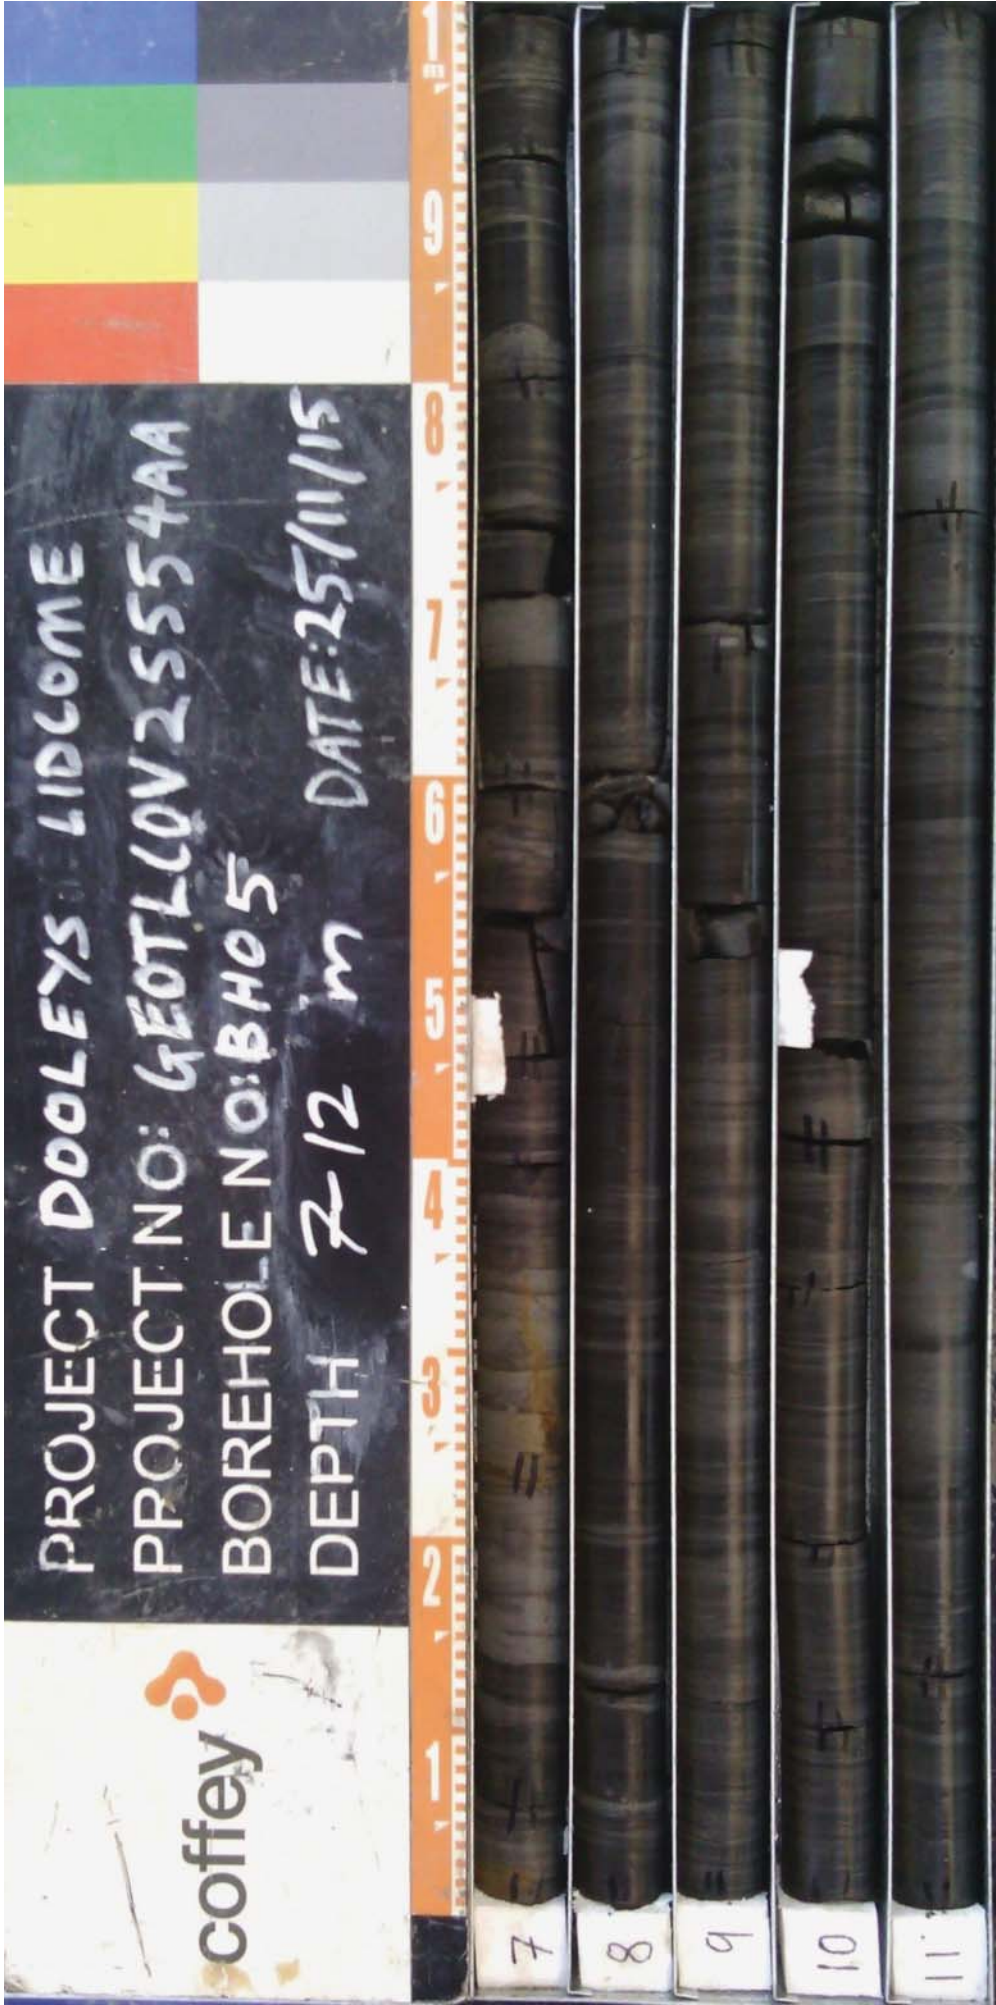 PROJECT DOOLEYS LIDCOME
PROJECT NO: GEOTLCOV25554AA
BOREHOLE NO: BH05
DEPTH 7-12 m DATE: 25/11/15
coffey
1 2 3 4 5 6 7 8 9 1m
7
8
9
10
11